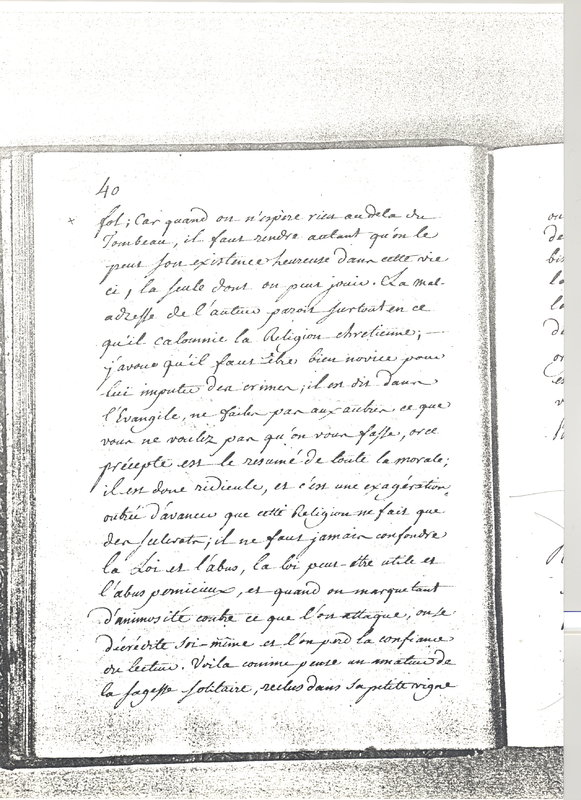 40
fol; Car quand on n'espere rien au dela du
Tombeau, il faut rendre autant qu'on le
peut son existence heureuse dans cette vie
ci, la seule dont on peut jouir. La mal-
adresse de l'auteur paroit surtout en ce
qu'il calomnie la Religion chretienne; —
j'avoue qu'il faut être bien novice pour
lui imputer des crimes; il est dit dans
l'Evangile, ne faites pas aux autres ce que
vous ne voulez pas qu'on vous fasse, or ce
précepte est le resumé de toute la morale;
il est donc ridicule, et c'est une exagération
outrée d'avancer que cette Religion ne fait que
des scelerats; il ne faut jamais confondre
la Loi et l'abus, la loi peut-être utile et
l'abus pernicieux, et quand on marque tant
d'animosité contre ce que l'on attaque, on se
décrédite soi-même et l'on perd la confiance
du lecteur. Voila comme pense un amateur de
la sagesse solitaire, reclus dans sa petite vigne
ou
de